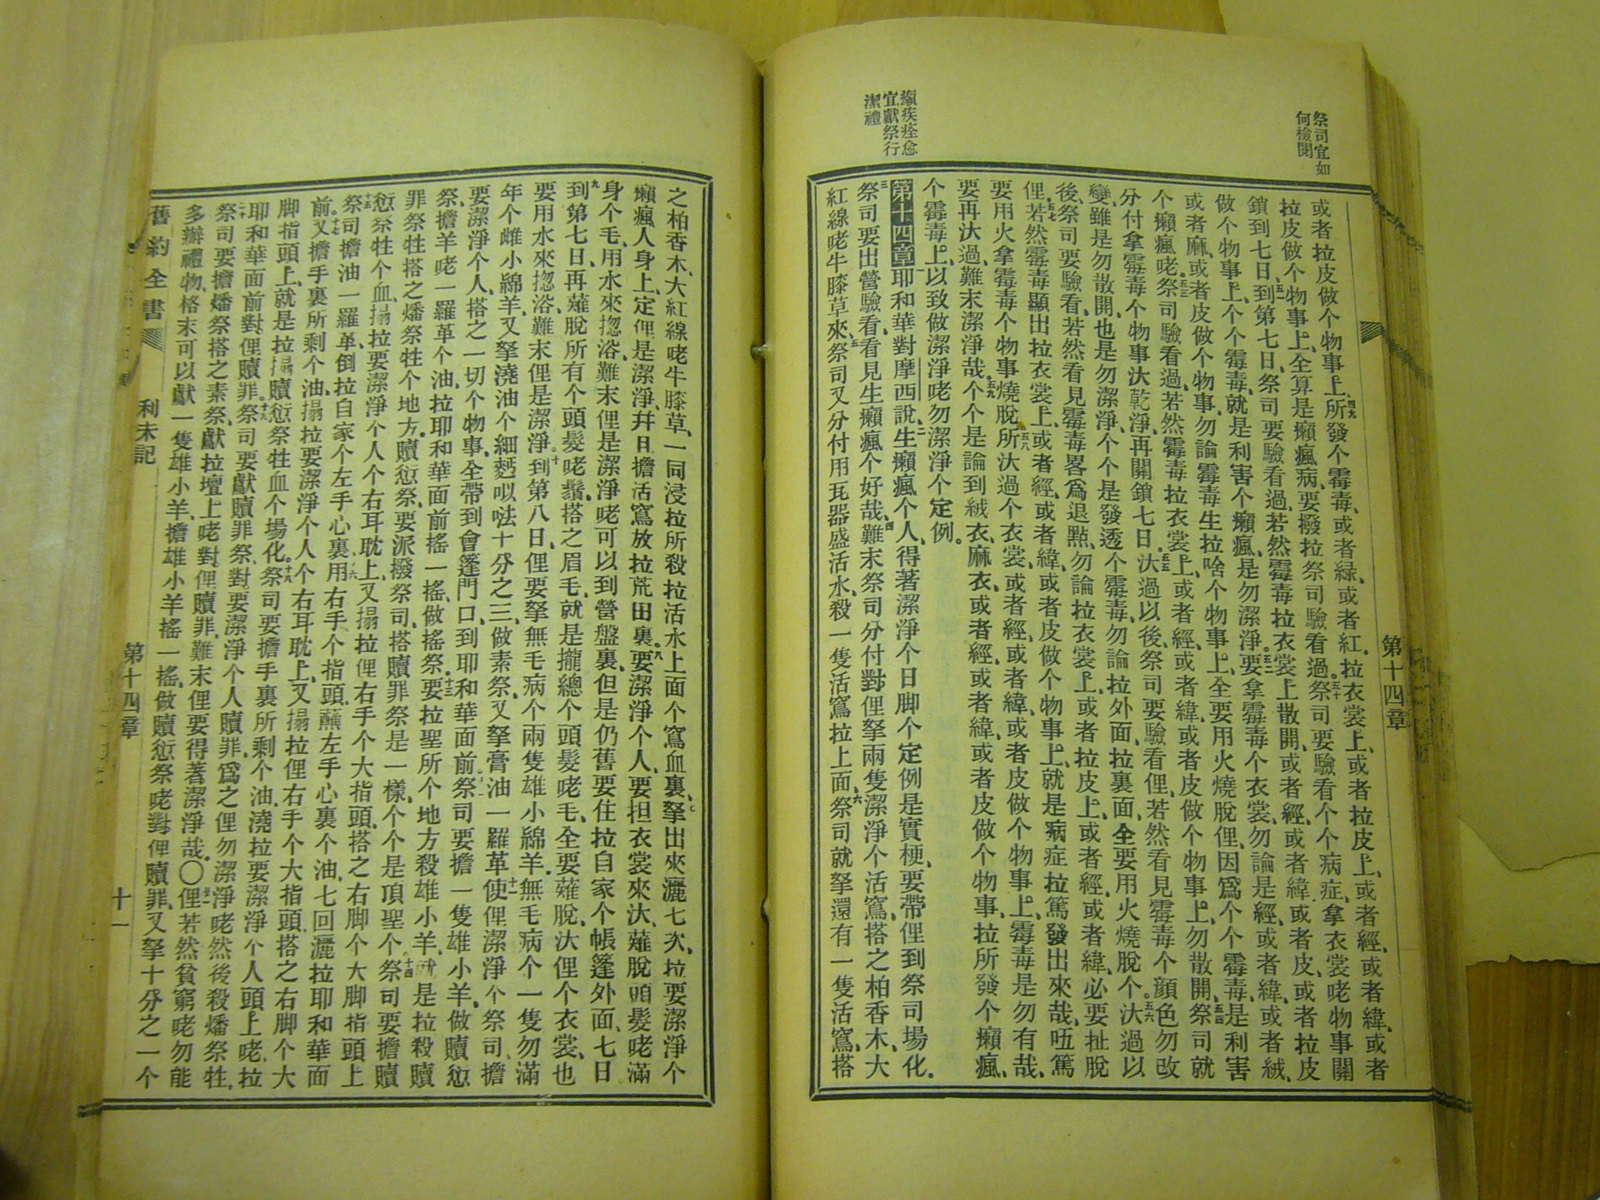 祭司宜如
何檢閱
癩疾痊愈
宜獻祭行
潔禮
第十四章
或者拉皮做个物事上所發个霉毒、或者緑、或者紅、拉衣裳上、或者拉皮上、或者經、或者緯、或者
拉皮做个物事上、全算是癩瘋病、要撥拉祭司驗看過、祭司要驗看个个病症、拿衣裳咾物事關
鎖到七日、到第七日、祭司要驗看過、若然霉毒拉衣裳上散開、或者經、或者緯、或者皮、或者拉皮
做个物事上、个个霉毒、就是利害个癩瘋、是勿潔淨、要拿霉毒个衣裳、勿論是經、或者緯、或者絨、
或者麻、或者皮做个物事、勿論霉毒生拉啥个物事上、全要用火燒脫俚、因爲个个霉毒、是利害
个癩瘋咾、祭司驗看過、若然霉毒拉衣裳上、或者經、或者緯、或者皮做个物事上、勿散開、祭司就
分付拿霉毒个物事汏乾淨、再關鎖七日、汏過以後、祭司要驗看俚、若然看見霉毒个顔色勿改
變、雖是勿散開、也是勿潔淨、个个是發透个霉毒、勿論拉外面拉裏面、全要用火燒脫、个汏過以
後、祭司要驗看、若然看見霉毒畧爲退點、勿論拉衣裳上、或者拉皮上、或者經、或者緯、必要扯脫
俚、若然霉毒顯出拉衣裳上、或者經、或者緯、或者皮做个物事上、就是病症拉篤發出來哉、吪篤
要用火拿霉毒个物事燒脫、所汏過个衣裳、或者經、或者緯、或者皮做个物事上、霉毒是勿有哉、
要再汏過、難末潔淨哉、个个是論到絨衣、麻衣、或者經、或者緯、或者皮做个物事、拉所發个癩瘋、
个霉毒上、以致做潔淨咾勿潔淨个定例。
第十四章 耶和華對摩西說、生癩瘋个人、得著潔淨个日脚个定例是實梗、要帶俚到祭司場化。
祭司要出營驗看、看見生癩瘋个好哉、難末祭司分付對俚拏兩隻潔淨个活窵、搭之柏香木、大
紅線咾牛膝草來、祭司又分付用瓦器盛活水、殺一隻活窵拉上面、祭司就拏還有一隻活窵、搭
之柏香木、大紅線咾牛膝草、一同浸拉所殺拉活水上面个窵血裏、拏出來灑七次、拉要潔淨个
癩瘋人身上、定俚是潔淨、幷日擔活窵放拉荒田裏、要潔淨个人、要担衣裳來汏、薙脫頭髮咾滿
身个毛、用水來揔浴、難末俚是潔淨咾可以到營盤裏、但是仍舊要住拉自家个帳篷外面、七日
到第七日、再薙脫所有个頭髮咾鬍、搭之眉毛、就是攏總个頭髮咾毛、全要薙脫、汏俚个衣裳、也
要用水來揔浴、難末俚是潔淨、到第八日、俚要拏無毛病个兩隻雄小綿羊、無毛病个一隻勿滿
年个雌小綿羊、又拏澆油个細麪以哒十分之三、做素祭、又拏膏油一羅革、使俚潔淨个祭司、擔
要潔淨个人、搭之一切个物事、全帶到會篷門口、到耶和華面前、祭司要擔一隻雄小羊、做贖愆
祭、擔羊咾一羅革个油、拉耶和華面前搖一搖、做搖祭、要拉聖所个地方殺雄小羊、就是拉殺贖
罪祭牲搭之燔祭牲个地方、贖愆祭、要派撥祭司、搭贖罪祭是一樣、个个是頂聖个、祭司要擔贖
愆祭牲个血、搨拉要潔淨个人个右耳耽上、又搨拉俚右手个大指頭、搭之右脚个大脚指頭上
祭司擔油一羅革、倒拉自家个左手心裏、用右手个指頭、蘸左手心裏个油、七回灑拉耶和華面
前、又擔手裏所剩个油、搨拉要潔淨个人个右耳耽上、又搨拉俚右手个大指頭、搭之右脚个大
脚指頭上、就是拉搨贖愆祭牲血个場化、祭司要擔手裏所剩个油、澆拉要潔淨个人頭上咾、拉
耶和華面前對俚贖罪、祭司要獻贖罪祭、對要潔淨个人贖罪、爲之俚勿潔淨咾、然後殺燔祭牲、
祭司要擔燔祭搭之素祭、獻拉壇上咾、對俚贖罪、難末俚要得著潔淨哉、〇俚若然貧窮咾勿能
多辦禮物、格末可以獻一隻雄小羊、擔雄小羊搖一搖、做贖愆祭咾對俚贖罪、又拏十分之一个
舊約全書
利未記
第十四章
十一